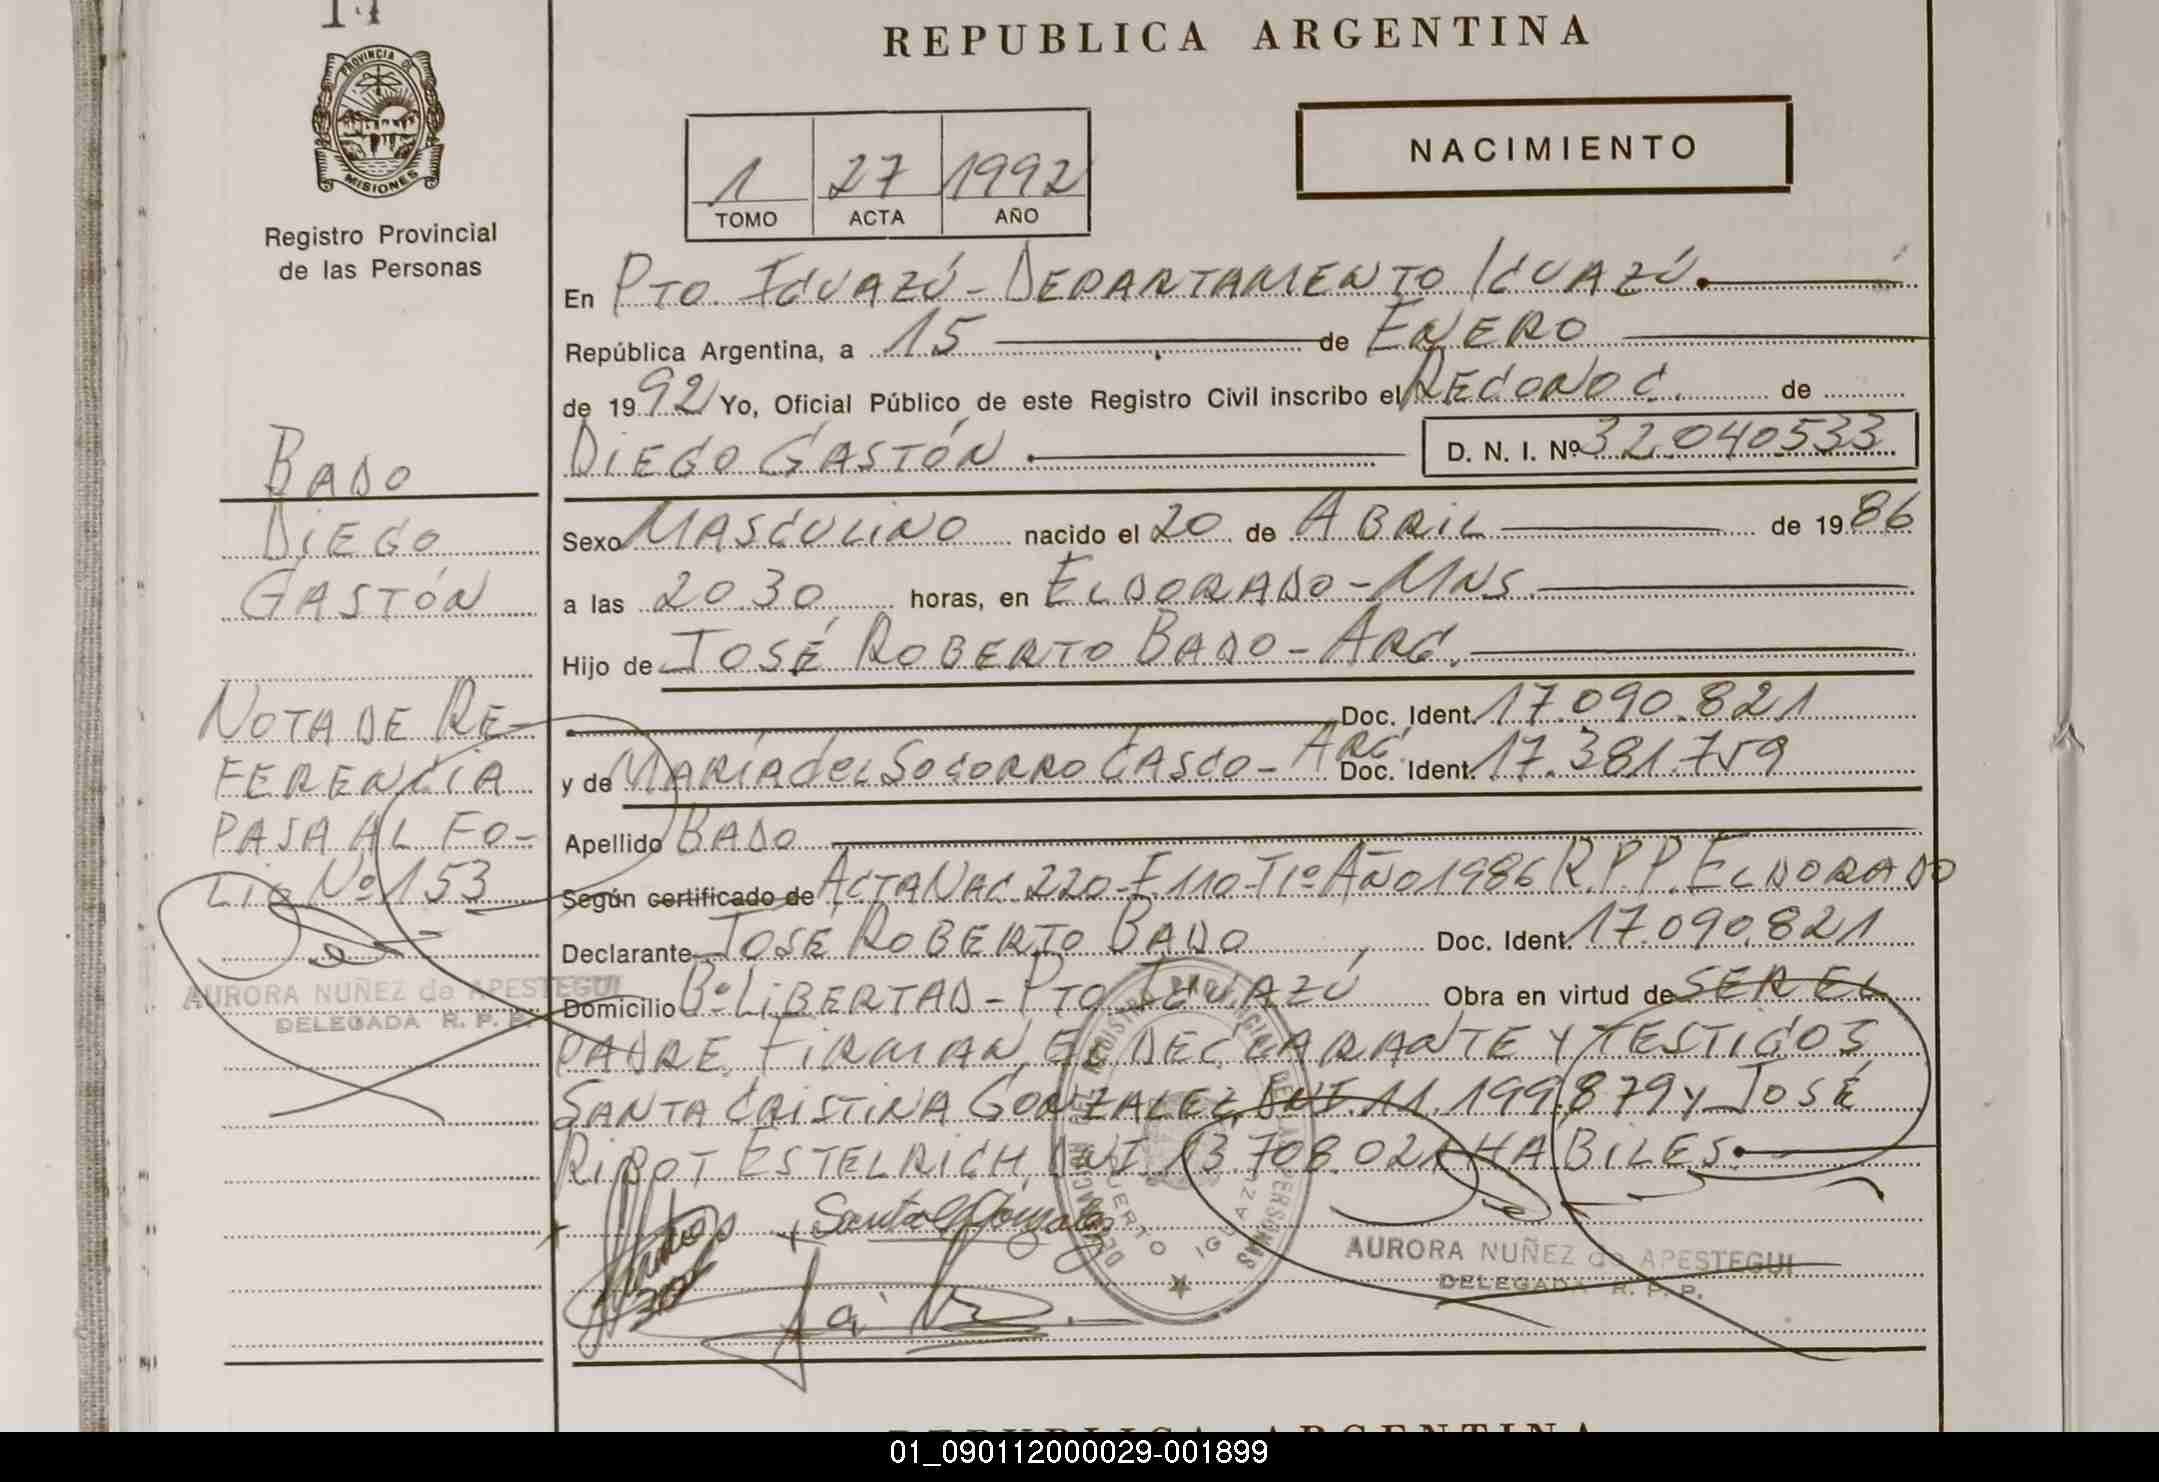 14
PROVINCIA DE
MISIONES
Registro Provincial
de las Personas
REPUBLICA ARGENTINA
1 27 1992
TOMO ACTA AÑO
NACIMIENTO
En PTO. IGUAZÚ - DEPARTAMENTO IGUAZÚ.
República Argentina, a 15 de ENERO
de 1992 Yo, Oficial Público de este Registro Civil inscribo el RECONOC. de
DIEGO GASTÓN D. N. I. Nº 32.040533
Sexo MASCULINO nacido el 20 de ABRIL de 1986
a las 20.30 horas, en ELDORADO - MNS.
Hijo de JOSÉ ROBERTO BADO - ARG.
Doc. Ident. 17.090.821
y de MARÍA del SOCORRO CASCO - ARG. Doc. Ident. 17.381.759
Apellido BADO
Según certificado de ACTA NAC. 220-F.110-T1º AÑO 1986 R.P.P. ELDORADO
Declarante JOSÉ ROBERTO BADO, Doc. Ident. 17.090.821
Domicilio Bº LIBERTAD - PTO IGUAZÚ Obra en virtud de SER EL
PADRE. FIRMAN EL DECLARANTE Y TESTIGOS
SANTA CRISTINA GONZALEZ, DNI. 11.199.879 y JOSÉ
RIPOT ESTELRICH, DNI. 13.708.021 HABILES.
Santa C Gonzalez
AURORA NUÑEZ de APESTEGUI
DELEGADA R. P. P.
BADO
DIEGO
GASTÓN
NOTA DE RE-
FERENCIA
PASA AL FO-
LIO Nº 153
AURORA NUÑEZ de APESTEGUI
DELEGADA R. P. P.
REPUBLICA ARGENTINA
01_090112000029-001899